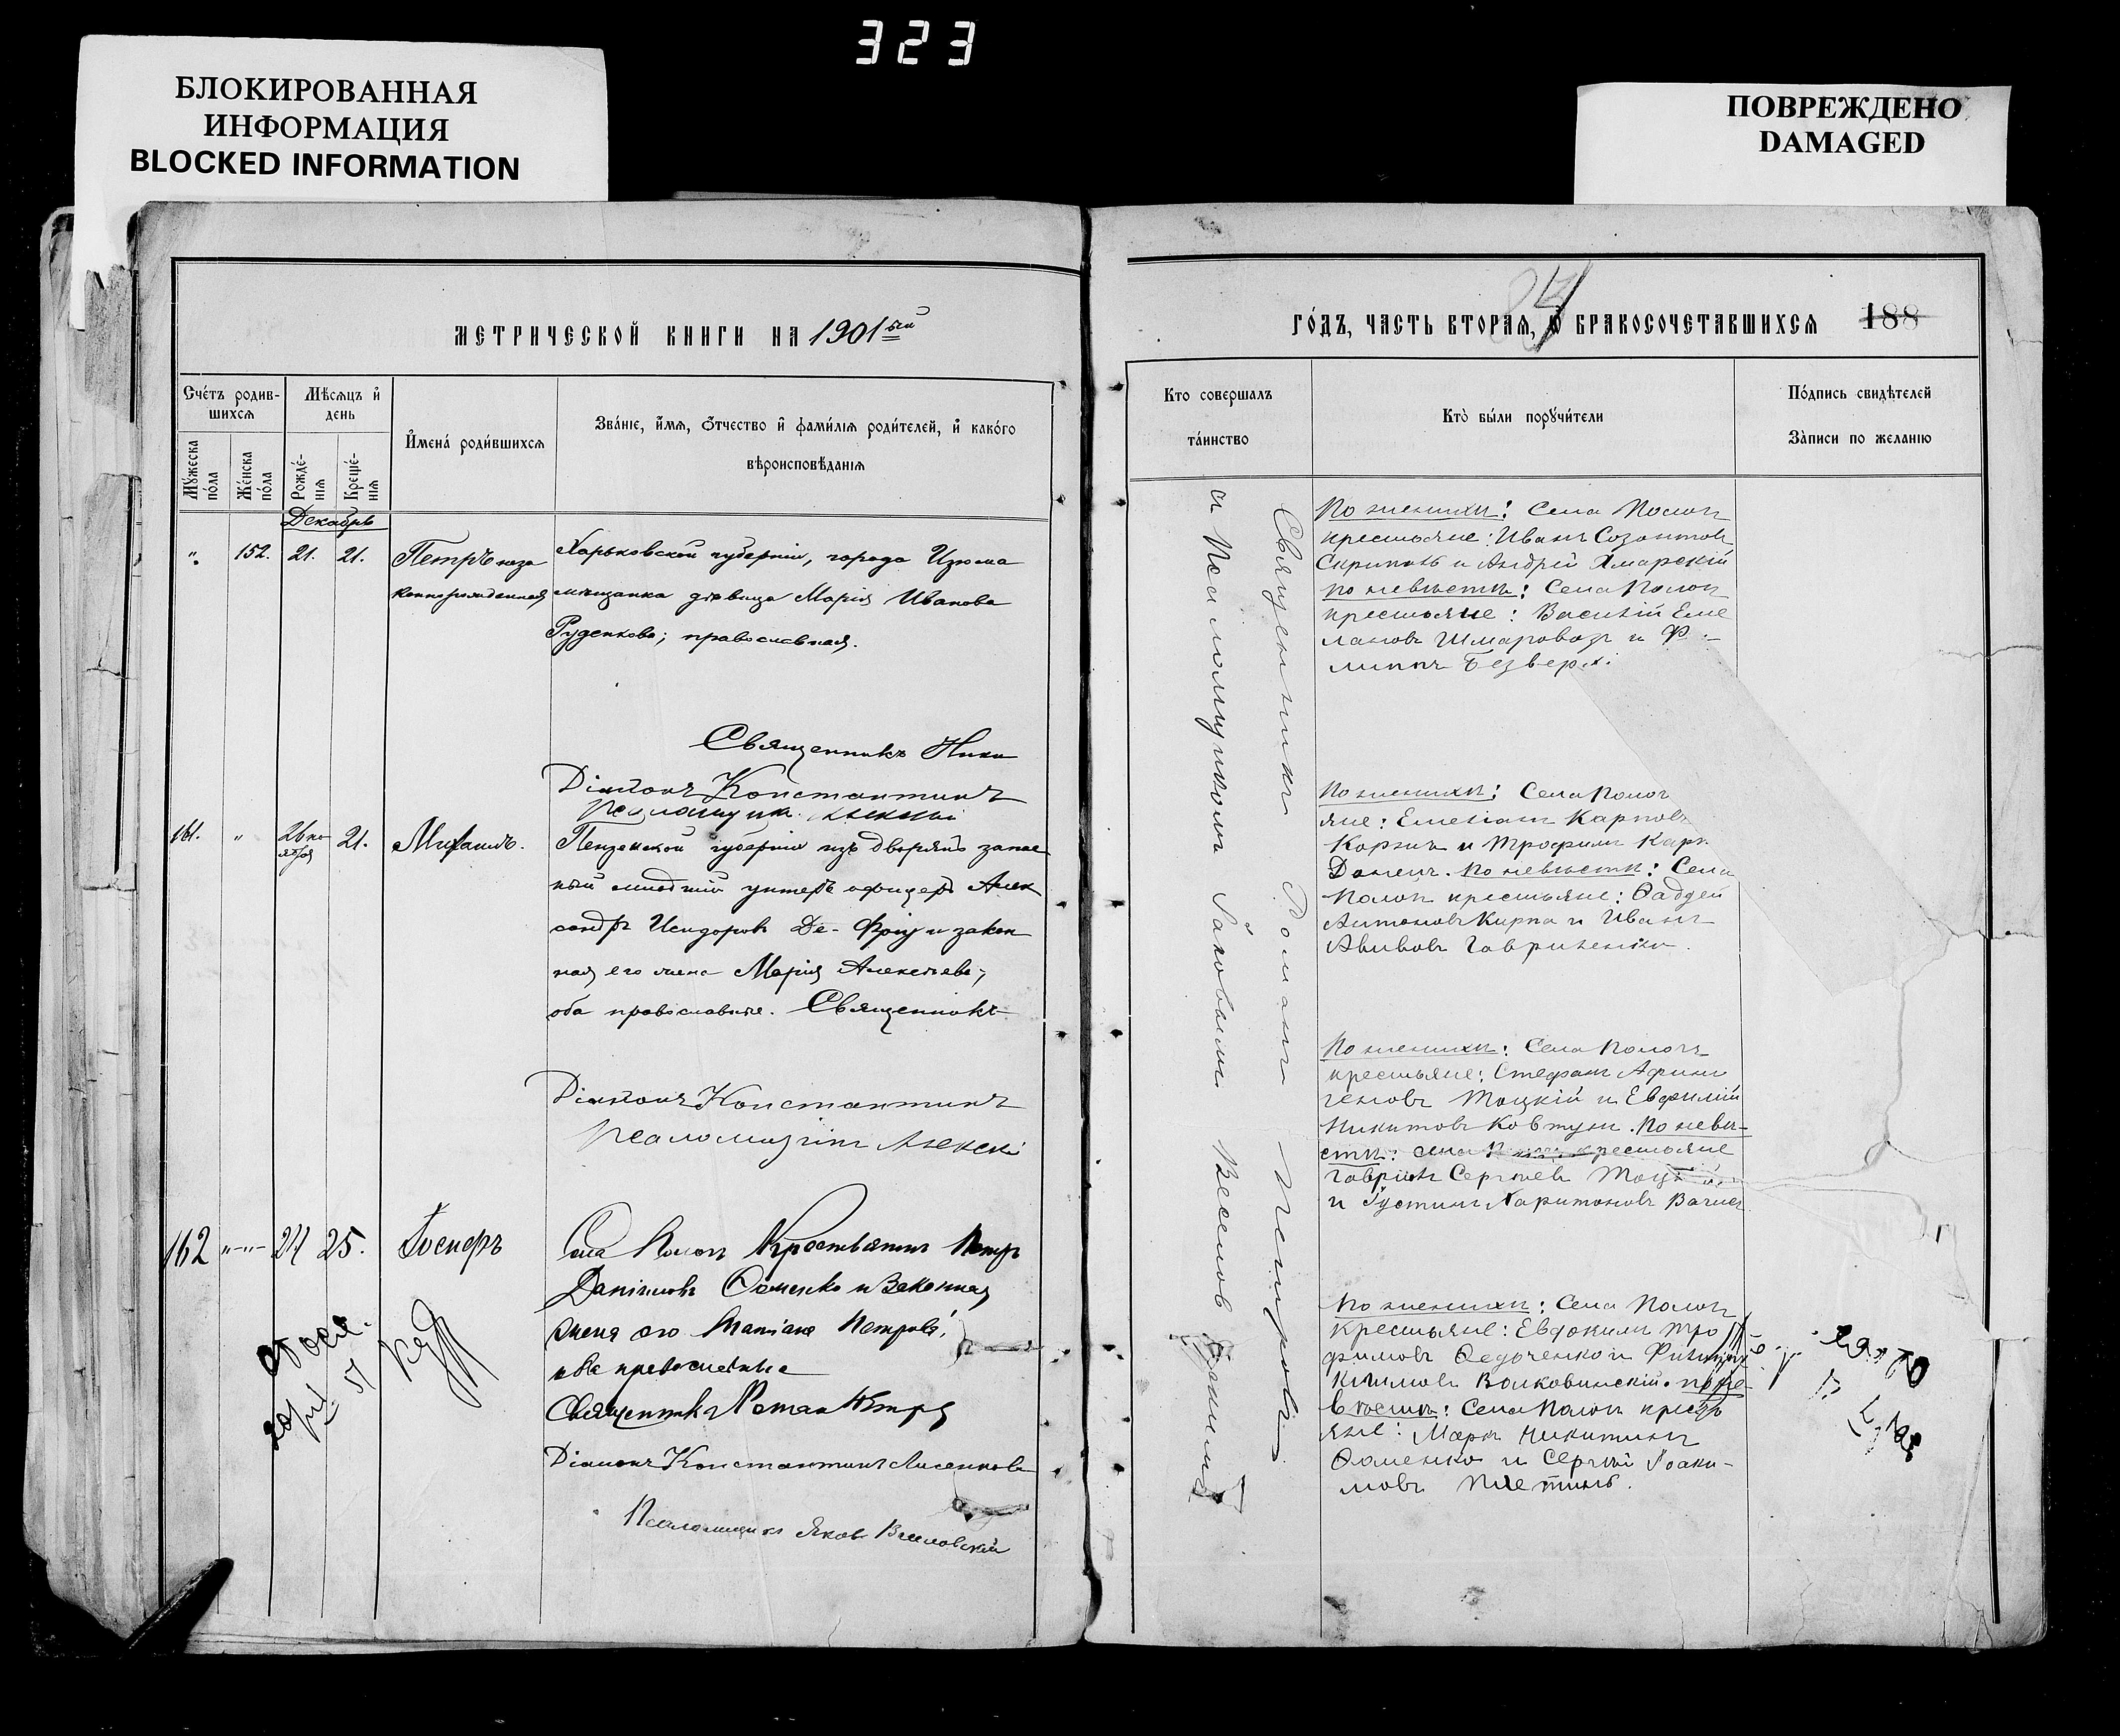 323
БЛОКИРОВАННАЯ
ИНФОРМАЦИЯ
BLOCKED INFORMATION
ПОВРЕЖДЕНО
DAMAGED
МЕТРИЧЕСКОЙ КНИГИ НА 1901ый
Счетъ родив-
шихся
Мѣсяцъ и
день
Мужеска
пола
Женска
пола
Рожде-
нія
Креще-
нія
Имена родившихся
Званіе, имя, отчество и фамилія родителей, и какого
вѣроисповѣданія
Декабрь
" 152. 21. 21.
Петръ неза
коннорожденный
Харьковской губерніи, города Изюма
мѣщанка дѣвица Марія Иванова
Руденкова; православная.
Священникъ Ники
Діаконъ Константинъ
161. " 26 но
ября 21. Михаилъ.
Пензенской губерніи изъ дворянъ запас
ный младшій унтеръ офицеръ Алек
сандръ Исидоровъ Де-
и закон
ная его жена Марія Алексѣева;
оба православные. Священникъ
Діаконъ Константинъ
Псаломщикъ Алексѣй
162 "-"- 24 25. Іосифъ
Села Пологъ Крестьянинъ Петръ
Даніиловъ Фоменко и Законная
жена его Татіана Петрова,
оба православные
Священникъ Романъ Петровъ
Діаконъ Константинъ Лисенковъ
Псаломщикъ Яковъ
ГОДЪ, ЧАСТЬ ВТОРАЯ, О БРАКОСОЧЕТАВШИХСЯ 188
84
Кто совершалъ
таинство
Кто были поручители
Подпись свидѣтелей
Записи по желанію
Священникъ Романъ Петровъ
и Псаломщикомъ Іаковымъ
По женихи: Села Пологъ
крестьяне: Иванъ Созонтовъ
Скрипаль и Андрей Хмарскій
по невѣстѣ: Села Пологъ
крестьяне: Василій Еме
лановъ Шмаровозъ и Ф
липпъ Безвер
По женихи: Села Полог
яне: Емеліанъ Карповъ
Коржъ и Трофимъ Карп
Донецъ. По невѣстѣ: Села
Пологъ крестьяне: Фаддей
Антоновъ Кирпа и Иванъ
Авивовъ Гавриленко.
По женихи: Села Пологъ
крестьяне: Стефанъ Афино
геновъ Тоцкій и Евфимій
Никитовъ Ковтунъ. По невѣ-
стѣ: села крестьяне
Гавріилъ Сергѣевъ Тоцкій
и Іустинъ Харитоновъ
По женихи: Села Пологъ
крестьяне: Евдокимъ Тро
фимовъ Федоченко и Филиппъ
Климовъ Волковинскій. по не-
вѣстѣ: Села Пологъ кресть
яне: Маркъ Никитинъ
Фоменко и Сергій Іоаки-
мовъ